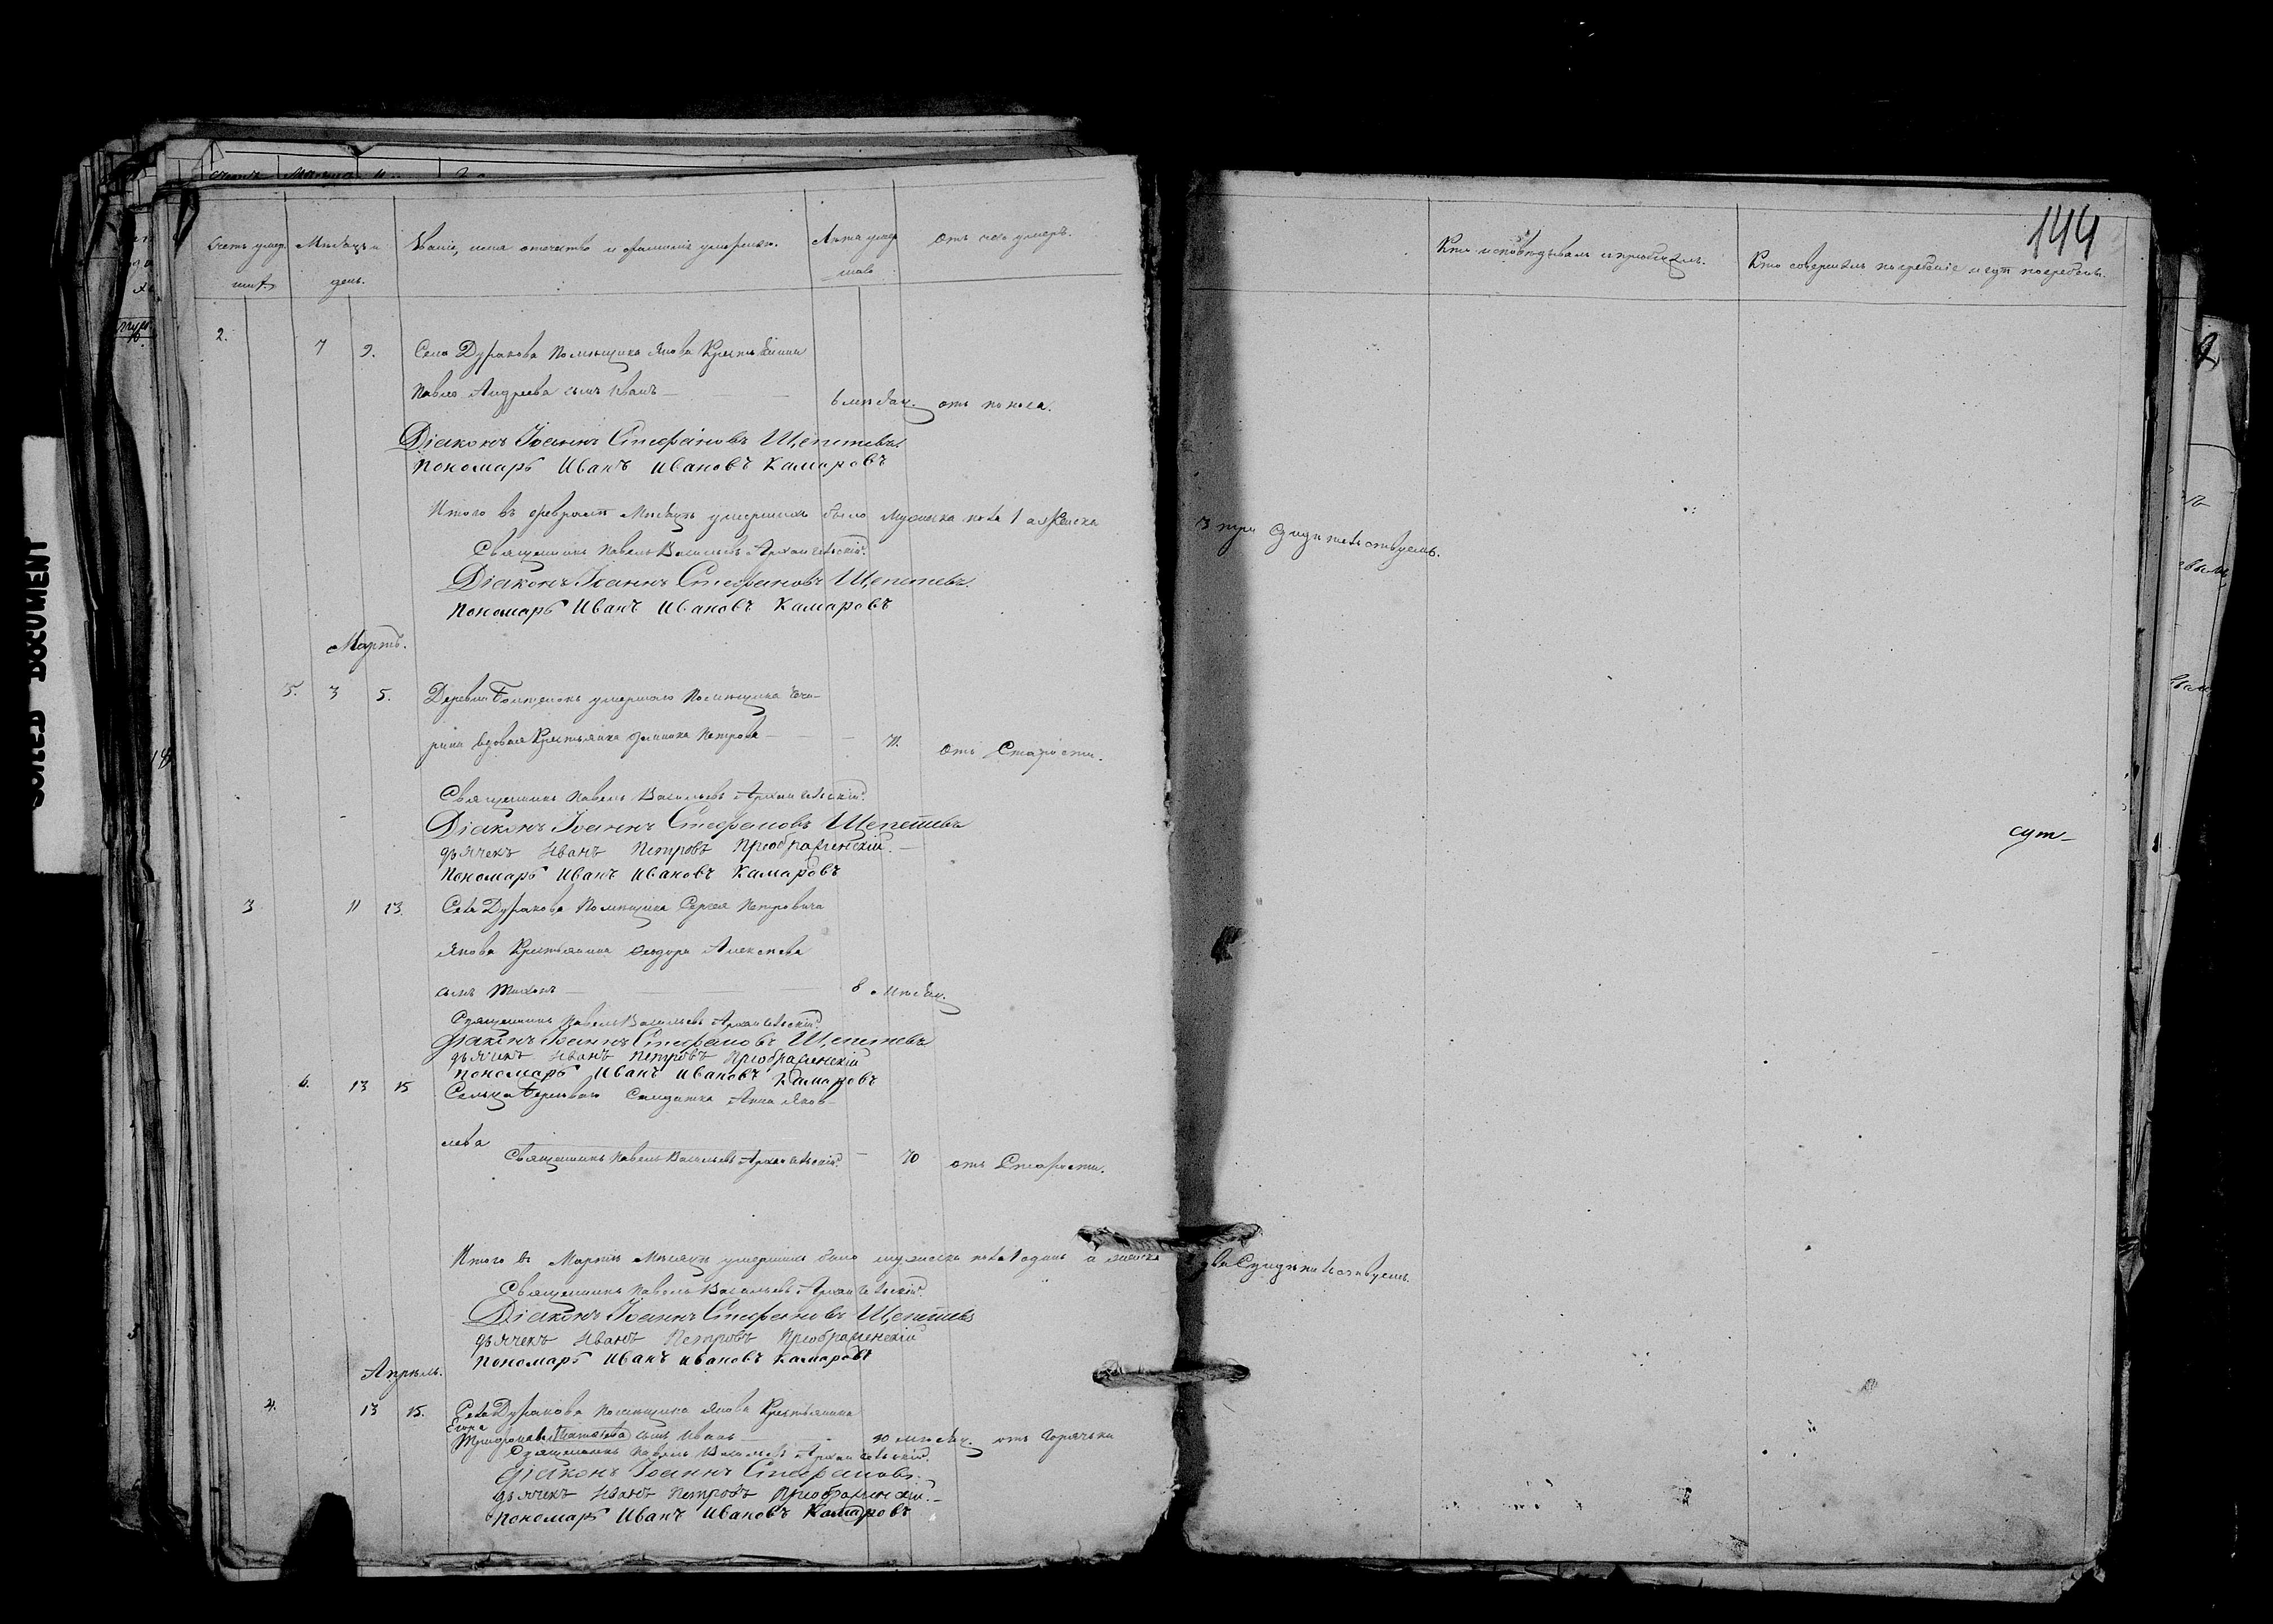 144
Счетъ умер- Мѣсяцъ и Званіе, имя отечество и фамилія умершихъ. Лѣта умер отъ чего умеръ. Кто исповѣдывалъ и пріобщалъ. Кто совершалъ погребеніе и гдѣ погребенъ.
шихъ день. шаго
2. 7 9. Села Дуракова Помѣщика Янова Крестьянина
Павла Андреева сынъ Иванъ 6 мѣсяц. отъ поноса.
Діаконъ Іоаннъ Стефановъ Щепетевъ
Пономарь Иванъ Ивановъ Камаровъ
Итого въ февралѣ Мѣсяцѣ умершихъ было мужеска пола 1 а женска 3 три
Священникъ Павелъ Васильевъ Архангельскій.
Діаконъ Іоаннъ Стефановъ Щепетевъ.
Пономарь Иванъ Ивановъ Камаровъ
Мартъ.
5. 3 5. Деревни умершаго Помѣщика
вдовая Крестьянка Петрова 71. отъ Старости.
Священникъ Павелъ Васильевъ Архангельскій.
Діаконъ Іоаннъ Стефановъ Щепетевъ
дьячекъ Иванъ Петровъ Преображенскій.
Пономарь Иванъ Ивановъ Камаровъ
3 11 13. Села Дуракова Помѣщика Сергея Петровича
Янова Крестьянина Ѳеодора Алексѣева
сынъ Тихонъ 8 мѣсяц.
Священникъ Павелъ Васильевъ Архангельскій.
Діаконъ Іоаннъ Стефановъ Щепетевъ
дьячекъ Иванъ Петровъ Преображенскій
Пономарь Иванъ Ивановъ Камаровъ
6. 13 15 Сельца Солдатка Анна Яков-
лева
Священникъ Павелъ Васильевъ Архангельскій. 70 отъ Старости.
Итого въ Мартѣ Мѣсяцѣ умершихъ было мужеска пола 1 одинъ а женска
Священникъ Павелъ Васильевъ Архангельскій.
Діаконъ Іоаннъ Стефановъ Щепетевъ
дьячекъ Иванъ Петровъ Преображенскій
Пономарь Иванъ Ивановъ Камаровъ
Апрѣль.
4. 13 15. Села Дуракова Помѣщика Янова Крестьянина
Егора
Трифонова сынъ Иванъ 10 мѣсяц. отъ Горячки
Священникъ Павелъ Васильевъ Архангельскій.
Діаконъ Іоаннъ Стефановъ.
дьячекъ Иванъ Петровъ Преображенскій.
Пономарь Иванъ Ивановъ Камаровъ
SORTED DOCUMENT